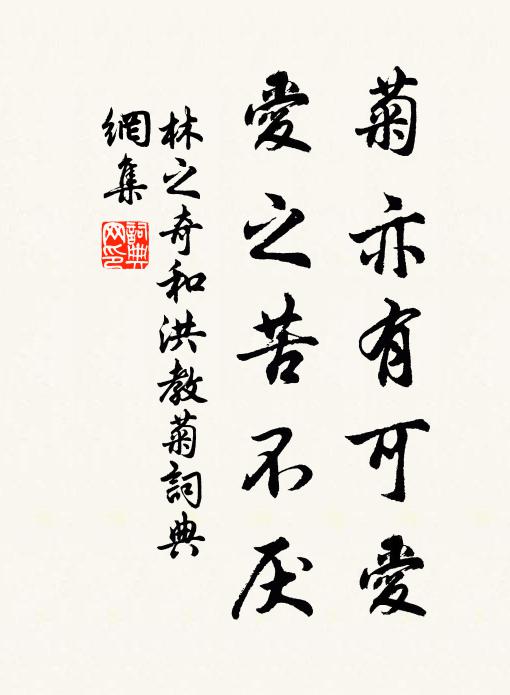 菊亦有可愛
愛之苦不厌
林之奇和洪教菊詞典
網集
詞典
网印